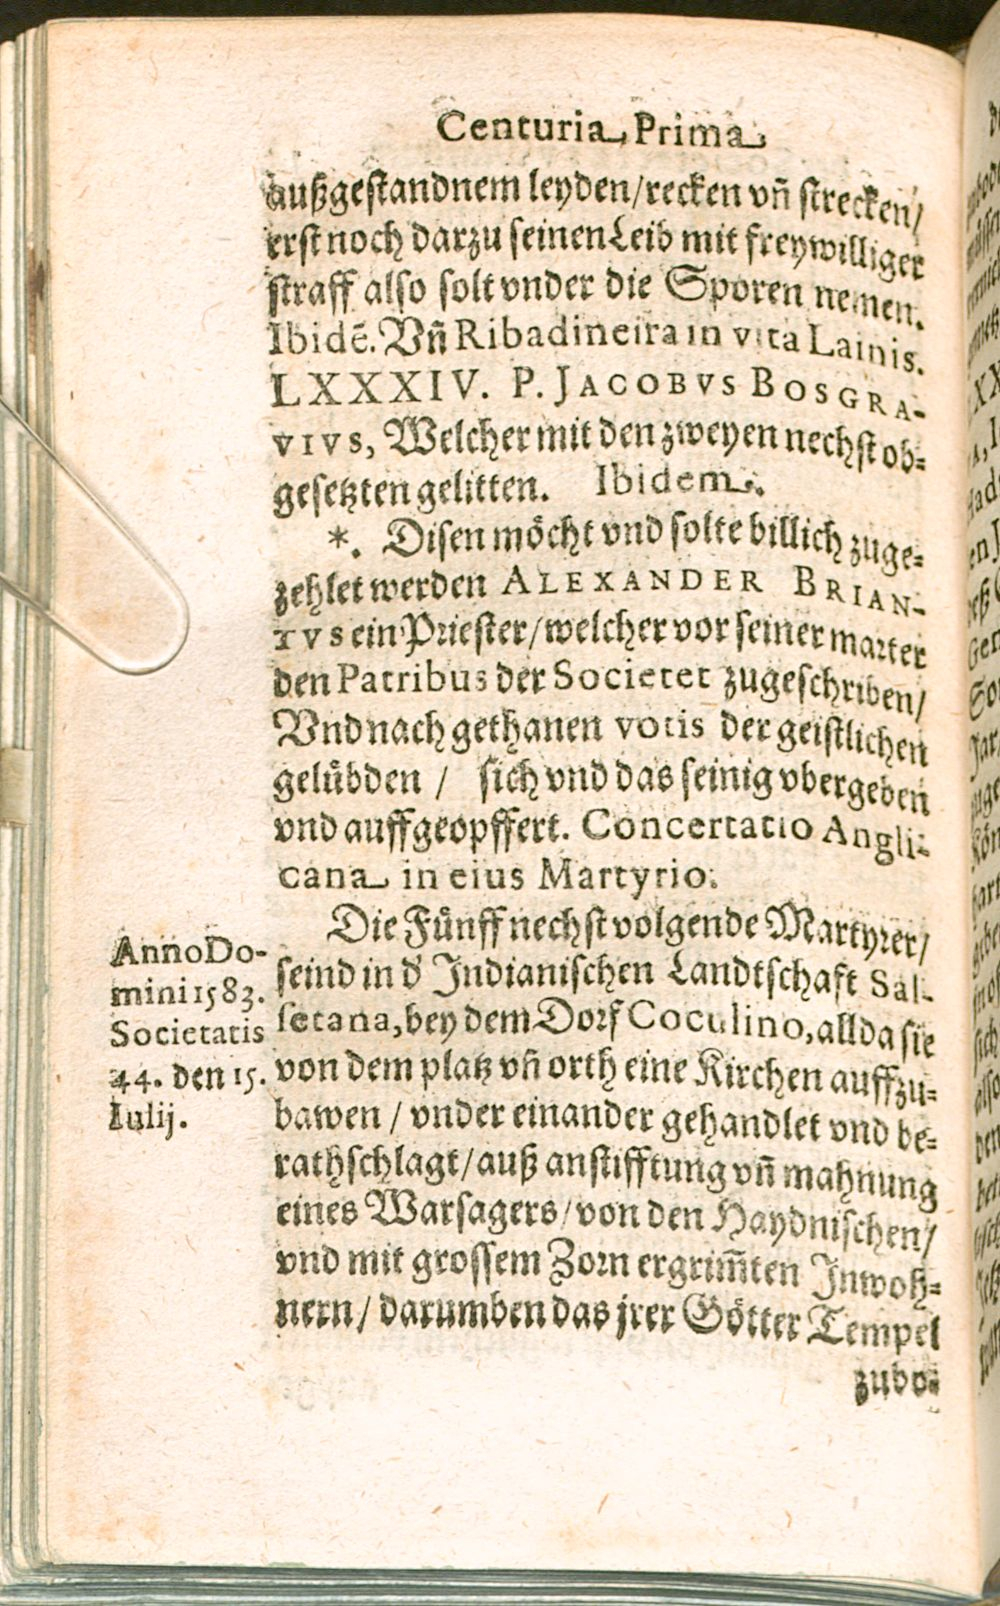 Centuria Prima
außgestandnem leyden/recken vñ strecken/
erst noch darzu seinen Leib mit freywilliger
straff also solt vnder die Sporen nemen.
Ibidẽ. Vñ Ribadineira in vita Lainis.
LXXXIV. P. JACOBVS BOSGRA-
VIVS, Welcher mit den zweyen nechst ob-
gesetzten gelitten. Ibidem.
*. Disen möcht vnd solte billich zuge-
zehlet werden ALEXANDER BRIAN-
TVS ein Priester/welcher vor seiner marter
den Patribus der Societet zugeschriben/
Vnd nach gethanen votis der geistlichen
gelübden / sich vnd das seinig vbergeben
vnd auffgeopffert. Concertatio Angli-
cana in eius Martyrio.
Die Fünff nechst volgende Martyrer/
seind in d' Indianischen Landtschaft Sal-
setana, bey dem Dorf Coculino, allda sie
von dem platz vñ orth eine Kirchen auffzu-
bawen / vnder einander gehandlet vnd be-
rathschlagt/auß anstifftung vñ mahnung
eines Warsagers/von den Haydnischen/
vnd mit grossem Zorn ergrim̃ten Inwoh-
nern/ darumben das jrer Götter Tempel
zuvo-
Anno Do-
mini 1583.
Societatis
44. den 15.
Iulij.